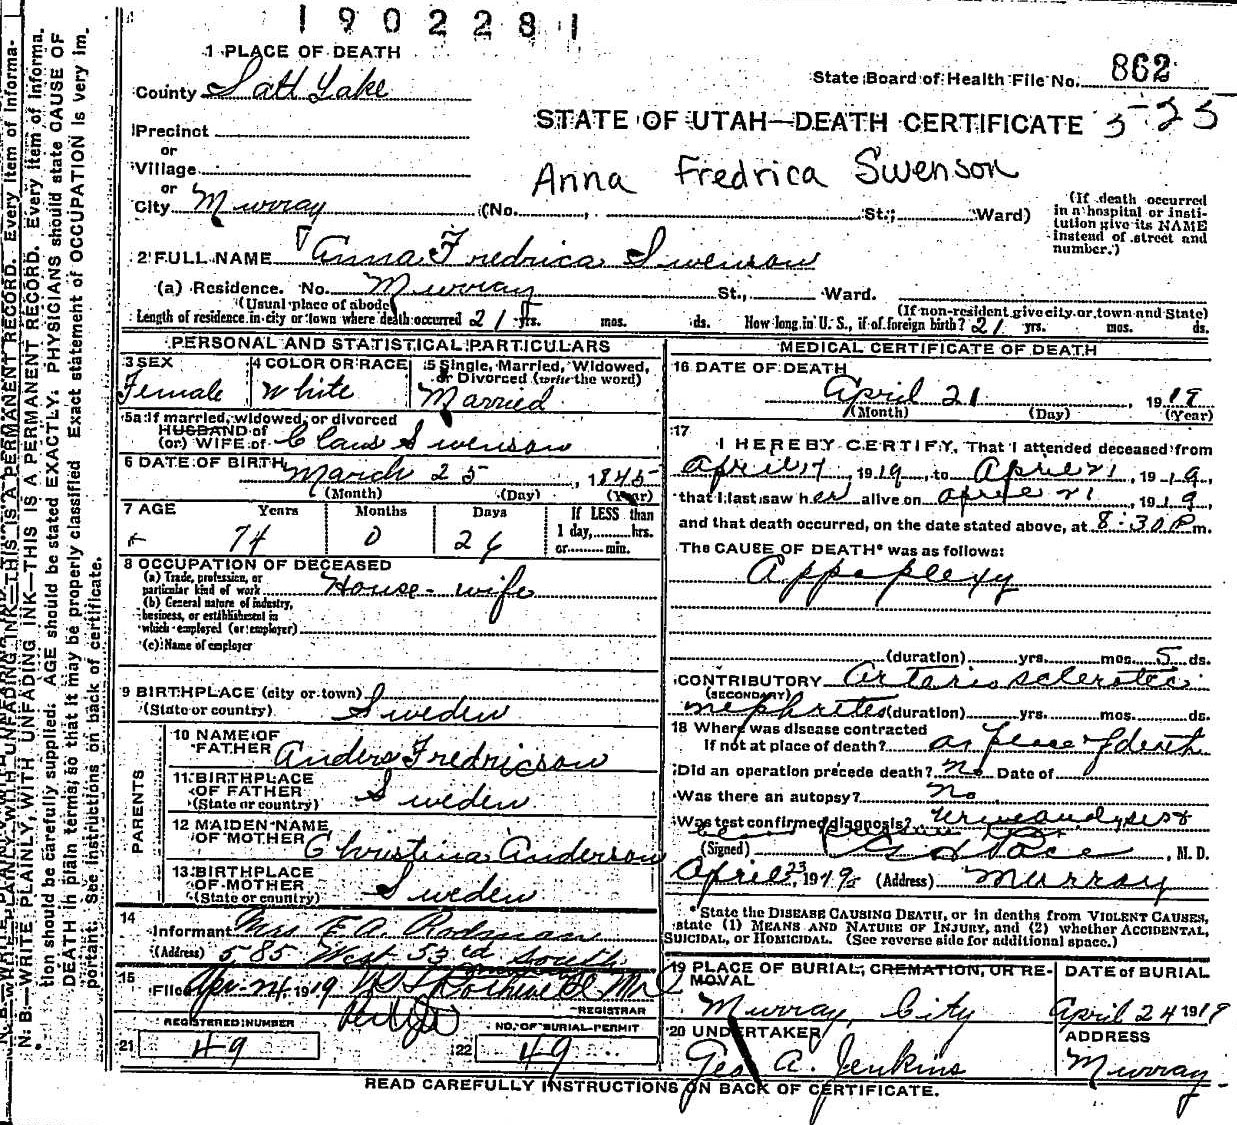 1902281
1 PLACE OF DEATH
State Board of Health File No. 862
County Salt Lake
STATE OF UTAH—DEATH CERTIFICATE 525
Precinct
or
Village
Anna Fredrica Swenson
or
City Murray (No. , St.; Ward)
(If death occurred in a hospital or institution give its NAME instead of street and number.)
2 FULL NAME Anna Fredrica Swenson
(a) Residence. No. Murray St., Ward.
(Usual place of abode) (If non-resident give city or town and State)
Length of residence in city or town where death occurred 21 yrs. mos. ds. How long in U. S., if of foreign birth? 21 yrs. mos. ds.
PERSONAL AND STATISTICAL PARTICULARS
3 SEX Female
4 COLOR OR RACE White
5 Single, Married, Widowed, or Divorced (write the word) Married
5a If married, widowed, or divorced
HUSBAND of
(or) WIFE of Claus Swenson
6 DATE OF BIRTH March 25, 1845
(Month) (Day) (Year)
7 AGE Years Months Days If LESS than
1 day, hrs.
or min.
74 0 26
8 OCCUPATION OF DECEASED
(a) Trade, profession, or
particular kind of work House-wife
(b) General nature of industry,
business, or establishment in
which employed (or employer)
(c) Name of employer
9 BIRTHPLACE (city or town)
(State or country) Sweden
PARENTS
10 NAME OF
FATHER Anders Fredricson
11 BIRTHPLACE
OF FATHER
(State or country) Sweden
12 MAIDEN NAME
OF MOTHER Christina Anderson
13 BIRTHPLACE
OF MOTHER
(State or country) Sweden
14
Informant Mrs E. A. Rodman
(Address) 585 West 53rd South
15
Filed Apr. 24, 1919
REGISTRAR
REGISTERED NUMBER
21 49
NO. OF BURIAL PERMIT
22 49
MEDICAL CERTIFICATE OF DEATH
16 DATE OF DEATH
April 21, 1919
(Month) (Day) (Year)
17
I HEREBY CERTIFY, That I attended deceased from
April 17, 1919, to April 21, 1919,
that I last saw her alive on April 21, 1919,
and that death occurred, on the date stated above, at 8:30 P m.
The CAUSE OF DEATH* was as follows:
Appoplexy
(duration) yrs. mos. 5 ds.
CONTRIBUTORY Arterio sclerotec
(SECONDARY)
nephrites (duration) yrs. mos. ds.
18 Where was disease contracted
If not at place of death? at place of death
Did an operation precede death? No Date of
Was there an autopsy? No
What test confirmed diagnosis? Urineanalysis &
(Signed) , M. D.
April 23, 1919 (Address) Murray
*State the DISEASE CAUSING DEATH, or in deaths from VIOLENT CAUSES,
state (1) MEANS AND NATURE OF INJURY, and (2) whether ACCIDENTAL,
SUICIDAL, or HOMICIDAL. (See reverse side for additional space.)
19 PLACE OF BURIAL, CREMATION, OR REMOVAL
Murray City
DATE of BURIAL
April 24 1919
20 UNDERTAKER
Geo A. Jenkins
ADDRESS
Murray
READ CAREFULLY INSTRUCTIONS ON BACK OF CERTIFICATE.
N. B.—WRITE PLAINLY, WITH UNFADING INK—THIS IS A PERMANENT RECORD. Every item of informa-
tion should be carefully supplied. AGE should be stated EXACTLY. PHYSICIANS should state CAUSE OF
DEATH in plain terms, so that it may be properly classified. Exact statement of OCCUPATION is very im-
portant. See instructions on back of certificate.